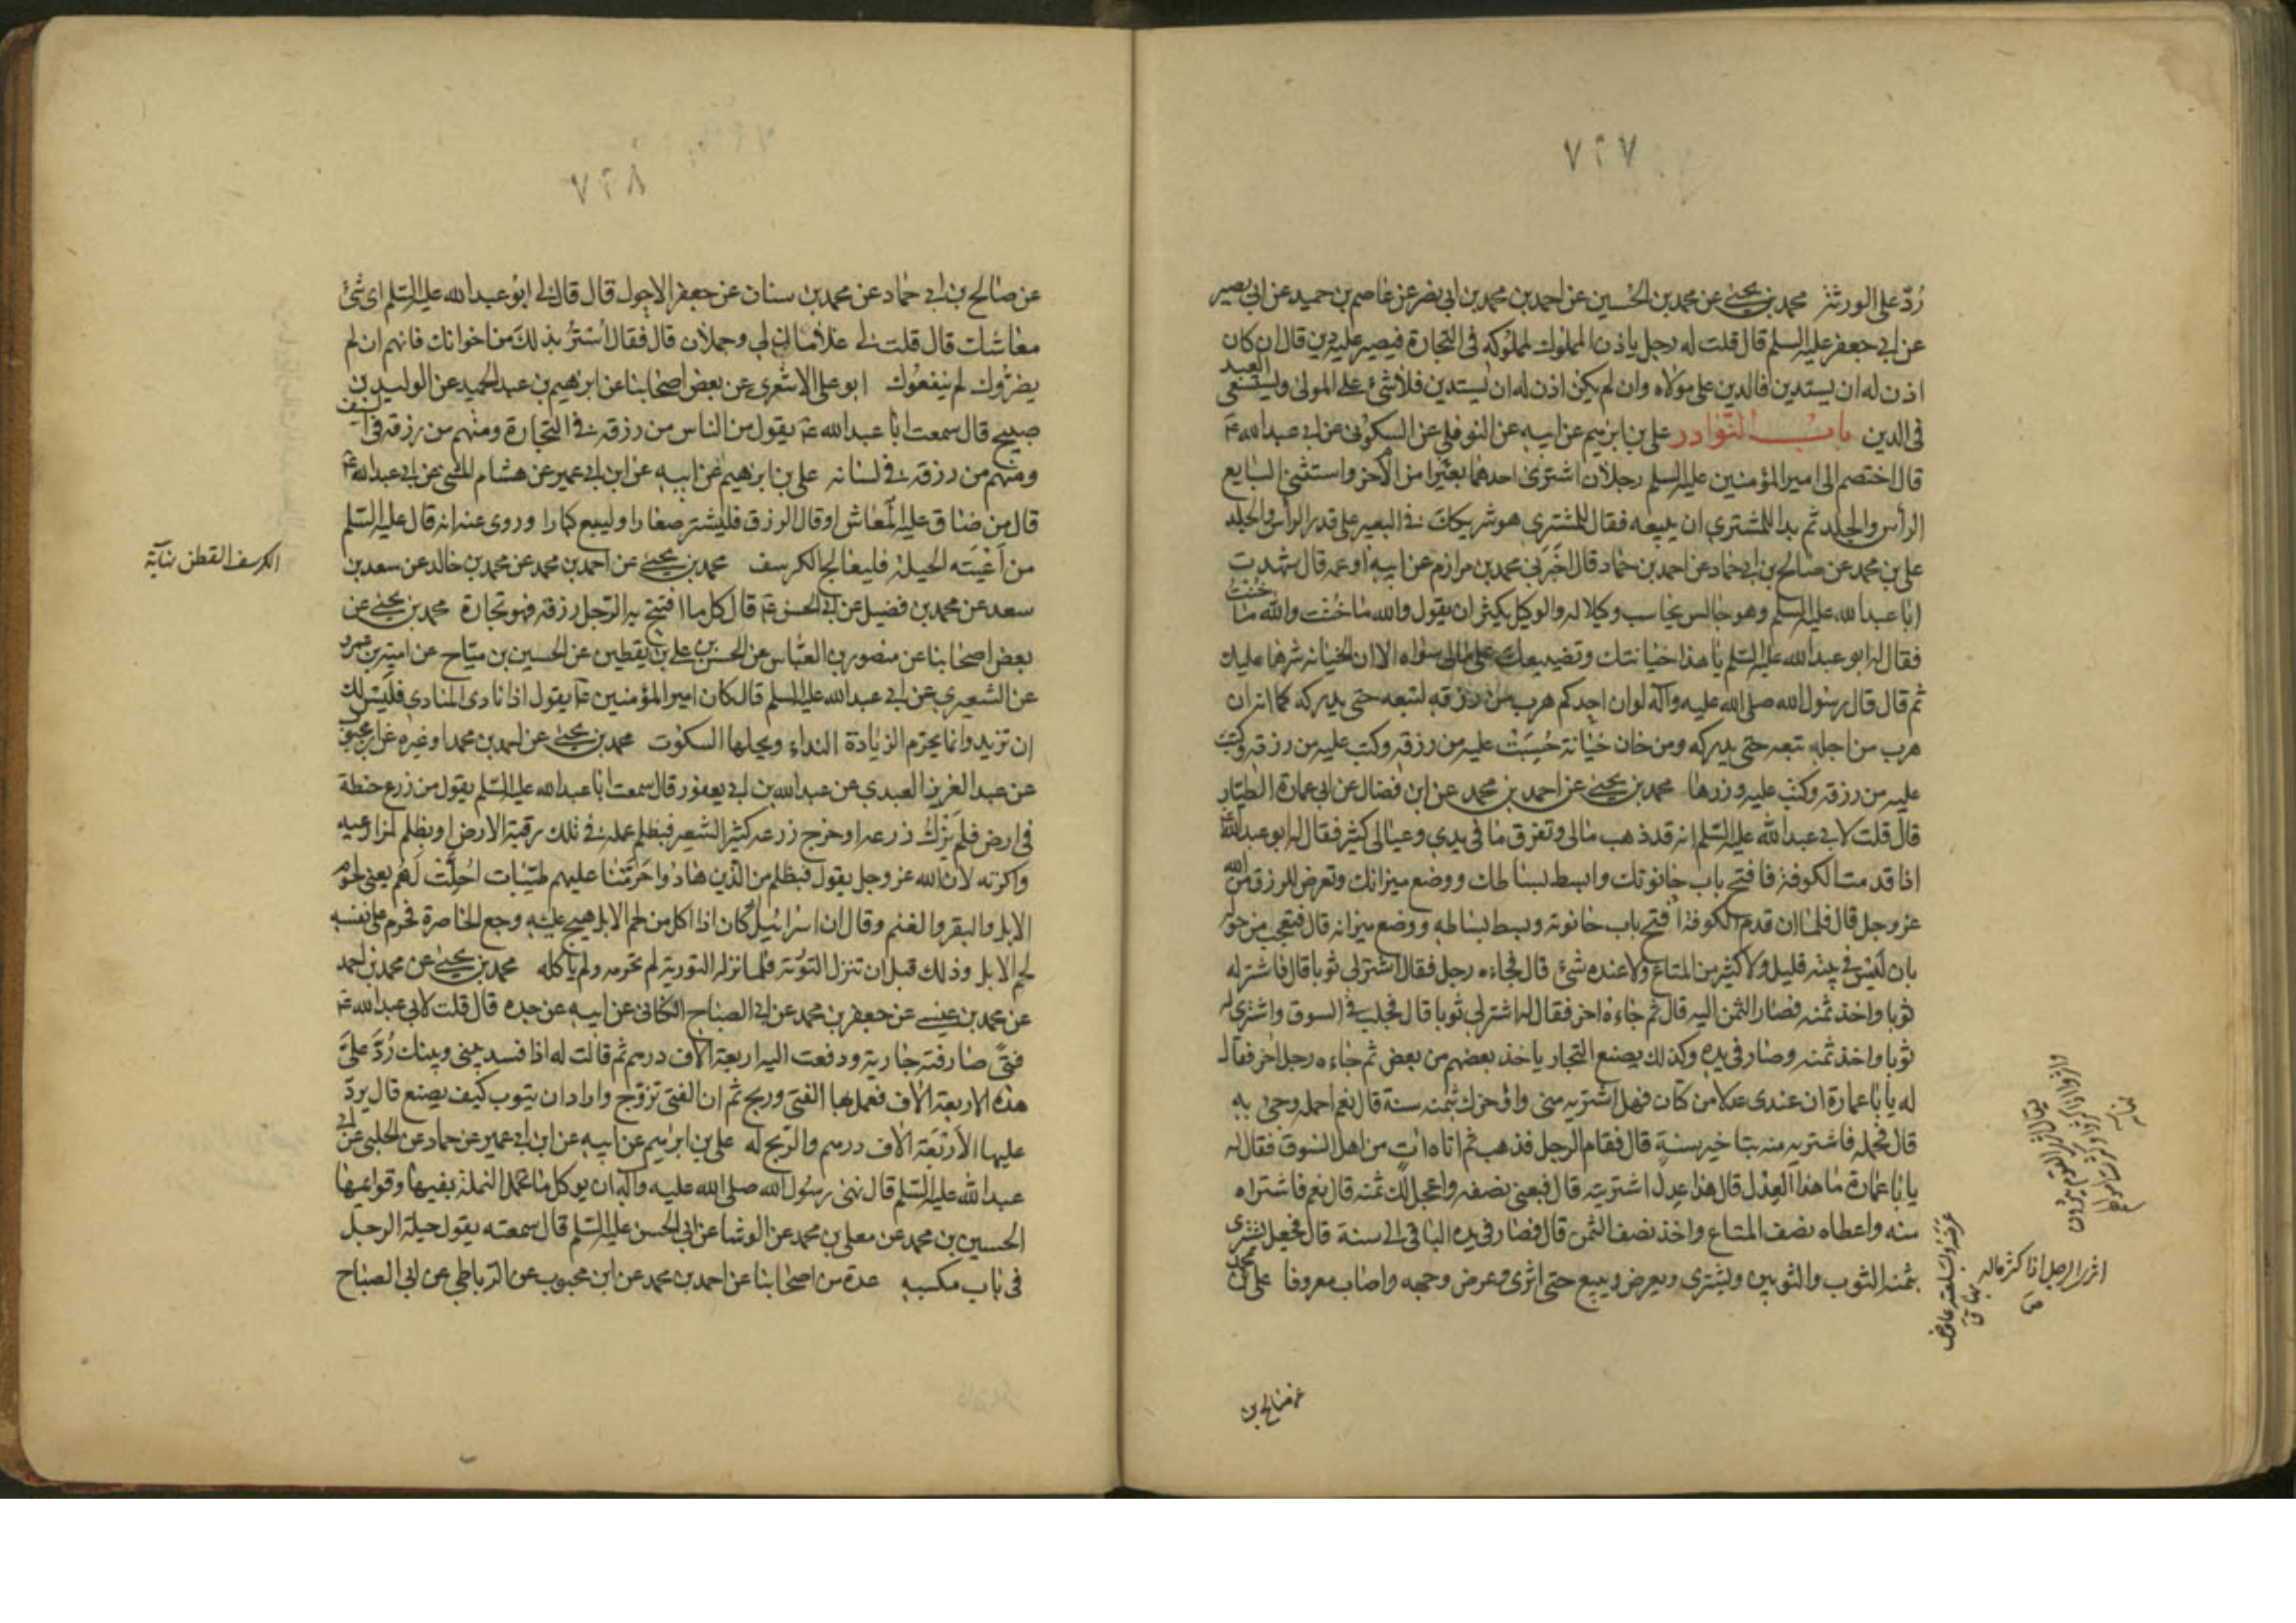 ٧٢٧
ردّ على الورثة محمد بن يحيى عن محمد بن الحسين عن احمد بن محمد بن ابى نصر عن عاصم بن حميد عن ابى بصير
عن ابى جعفر عليه السلم قال قلت له رجل ياذن لمملوكه فى التجارة فيصير عليه دين قال ان كان
اذن له ان يستدين فالدين على مولاه وان لم يكن اذن له ان يستدين فلا شئ على المولى ويستسعى العبد
فى الدين باب النوادر على بن ابرهيم عن ابيه عن النوفلى عن السكونى عن ابى عبد الله ع
قال اختصم الى امير المؤمنين عليه السلم رجلان اشترى احدهما بعيرا من الآخر واستثنى البايع
الرأس والجلد ثم بدا للمشترى ان يبيعه فقال للمشترى هو شريكك فى البعير على قدر الرأس والجلد
على بن محمد عن صالح بن ابى حماد عن احمد بن حماد قال اخبرنى محمد بن مرازم عن ابيه او عمه قال شهدت
ابا عبد الله عليه السلم وهو جالس يحاسب وكيلا له والوكيل يكثر ان يقول والله ما خنت والله ما خنت
فقال له ابو عبد الله عليه السلم يا هذا خيانتك وتضييعك على مالى سواه الا ان الخيانة شرها عليك
ثم قال قال رسول الله صلى الله عليه وآله لو ان احدكم هرب من رزقه لتبعه حتى يدركه كما انه ان
هرب من اجله تبعه حتى يدركه ومن خان خيانة حسبت عليه من رزقه وكتب عليه من رزقه وكتب
عليه من رزقه وكتب عليه وزرها محمد بن يحيى عن احمد بن محمد عن ابن فضال عن ابى عمارة الطيار
قال قلت لابى عبد الله عليه السلم انه قد ذهب مالى وتفرق ما فى يدى وعيالى كثير فقال له ابو عبد الله ع
اذا قدمت الكوفة فافتح باب حانوتك وابسط بساطك ووضع ميزانك وتعرض للرزق من الله
عز وجل قال فلما ان قدم الكوفة فتح باب حانوته وبسط بساطه ووضع ميزانه قال فتعجب من حوله
بان ليس فى بيته قليل ولا كثير من المتاع ولا عنده شئ قال فجاءه رجل فقال اشتر لى ثوبا قال فاشتر له
ثوبا واخذ ثمنه فصار الثمن اليه قال ثم جاءه اخر فقال له اشتر لى ثوبا قال فجلب فى السوق واشترى له
ثوبا واخذ ثمنه وصار فى يده وكذلك يصنع التجار ياخذ بعضهم من بعض ثم جاءه رجل اخر فقال
له يا با عمارة ان عندى عدلا من كتان فهل تشتريه منى واؤخرك بثمنه سنة قال نعم احمله وجئ به
قال فحمله فاشتريه منه بتاخير سنة قال فقام الرجل فذهب ثم اتاه ات من اهل السوق فقال له
يا با عمارة ما هذا العدل قال هذا عدل اشتريته قال فبعنى نصفه واعجل لك ثمنه قال نعم فاشتراه
منه واعطاه نصف المتاع واخذ نصف الثمن قال فصار فى يده الباقى الى سنة قال فجعل يشترى
بثمنه الثوب والثوبين ويشترى ويعرض ويبيع حتى اثرى وعرض وجهه واصاب معروفا على بن محمد
اثرى الرجل اذا كثر ماله
عن صالح بن
٧٢٨
عن صالح بن ابى حماد عن محمد بن سنان عن جعفر الاحول قال قال لى ابو عبد الله عليه السلم اى شئ
معاشك قال قلت لى غلامان لى وجملان قال فقال استتر بذلك من اخوانك فانهم ان لم
يضروك لم ينفعوك ابو على الاشعرى عن بعض اصحابنا عن ابرهيم بن عبد الحميد عن الوليد بن
صبيح قال سمعت ابا عبد الله ع يقول من الناس من رزقه فى التجارة ومنهم من رزقه فى السيف
ومنهم من رزقه فى لسانه على بن ابرهيم عن ابيه عن ابن ابى عمير عن هشام المثنى عن ابى عبد الله ع
قال من ضاق عليه المعاش او قال الرزق فليشتر صغارا وليبع كبارا وروى عنه انه قال عليه السلم
من اعيته الحيلة فليعالج الكرسف محمد بن يحيى عن احمد بن محمد عن محمد بن خالد عن سعد بن
الكرسف القطن نهاية
سعد عن محمد بن فضيل عن ابى الحسن ع قال كل ما افتتح به الرجل رزقه فهو تجارة محمد بن يحيى عن
بعض اصحابنا عن منصور بن العباس عن الحسن بن على بن يقطين عن الحسين بن مياح عن امية بن عمرو
عن الشعيرى عن ابى عبد الله عليه السلم قال كان امير المؤمنين ع يقول اذا نادى المنادى فليس لك
ان تزيد وانما يحرم الزيادة النداء ويحلها السكوت محمد بن يحيى عن احمد بن محمد او غيره عن ابن محبوب
عن عبد العزيز العبدى عن عبد الله بن ابى يعفور قال سمعت ابا عبد الله عليه السلم يقول من زرع حنطة
فى ارض فلم يزك زرعه او خرج زرعه كثير الشعير فبظلم عمله فى ملك رقبة الارض او بظلم لمزارعيه
واكرته لان الله عز وجل يقول فبظلم من الذين هادوا حرمنا عليهم طيبات احلت لهم يعنى لحوم
الابل والبقر والغنم وقال ان اسرائيل كان اذا اكل من لحم الابل هيج عليه وجع الخاصرة فحرم على نفسه
لحم الابل وذلك قبل ان تنزل التورية فلما نزلت التورية لم يحرمه ولم ياكله محمد بن يحيى عن محمد بن احمد
عن محمد بن عيسى عن جعفر بن محمد عن ابى الصباح الكنانى عن ابيه عن جده قال قلت لابى عبد الله ع
فتى صارفته جارية ودفعت اليه اربعة الاف درهم ثم قالت له اذا فسد بينى وبينك رد على
هذه الاربعة الاف فعمل بها الفتى وربح ثم ان الفتى تزوج واراد ان يتوب كيف يصنع قال يرد
عليها الاربعة الاف درهم والربح له على بن ابرهيم عن ابيه عن ابن ابى عمير عن حماد عن الحلبى عن ابى
عبد الله عليه السلم قال نهى رسول الله صلى الله عليه وآله ان يوكل ما تحمل النملة بفيها وقوائمها
الحسين بن محمد عن معلى بن محمد عن الوشا عن ابى الحسن عليه السلم قال سمعته يقول حيلة الرجل
فى باب مكسبه عدة من اصحابنا عن احمد بن محمد عن ابن محبوب عن الرباطى عن ابى الصباح